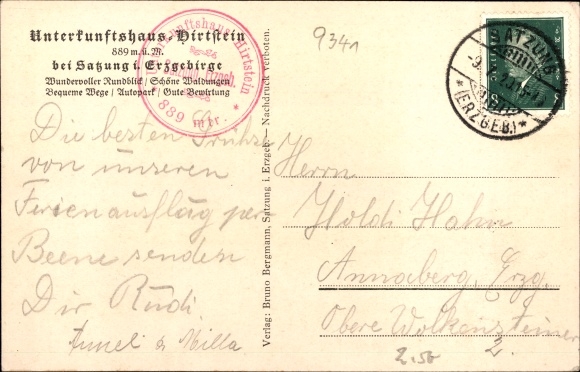 Unterkunftshaus Hirtstein
889 m. ü. M.
bei Satzung i. Erzgebirge
Wundervoller Rundblick / Schöne Waldungen
Bequeme Wege / Autopark / Gute Bewirtung
Unterkunftshaus Hirtstein
889 mtr.
9341
SATZUNG
* (ERZGEB.) *
Die besten Grüße
von unseren
Ferienausflug per
Beene senden
Dir Rudi
Verlag: Bruno Bergmann, Satzung i. Erzgeb. — Nachdruck verboten.
Herrn
Holdi Hahn
Annaberg, Erzg.
Obere Wolkensteiner
2.
2.50